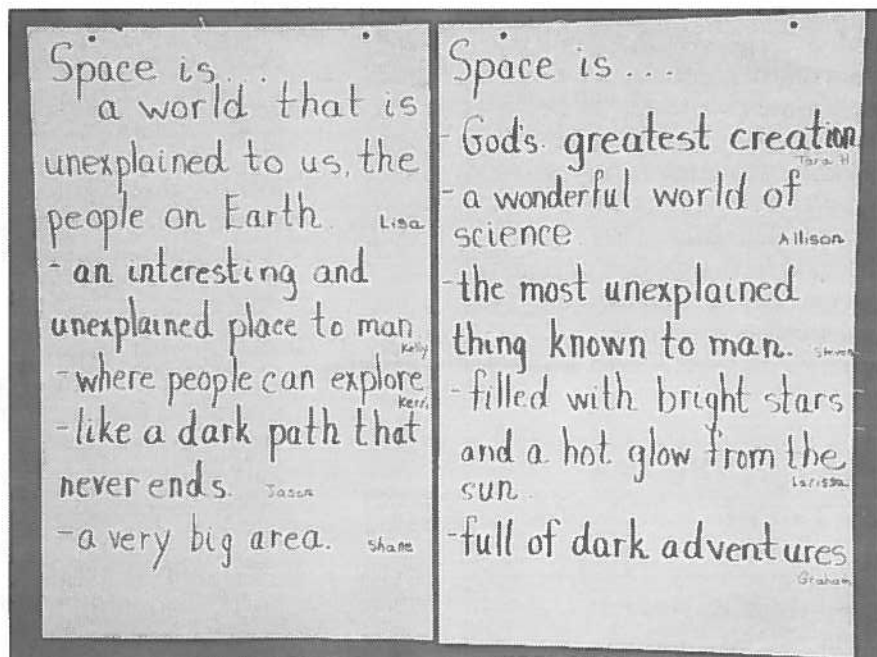 Space is...
a world that is
unexplained to us, the
people on Earth. Lisa
- an interesting and
unexplained place to man.
Kelly
- where people can explore
Kerri
- like a dark path that
never ends. Jason
- a very big area. Shane
Space is...
- God's greatest creation
Tara H
- a wonderful world of
science. Allison
- the most unexplained
thing known to man. Steven
- filled with bright stars
and a hot glow from the
Larissa
sun.
- full of dark adventures
Graham